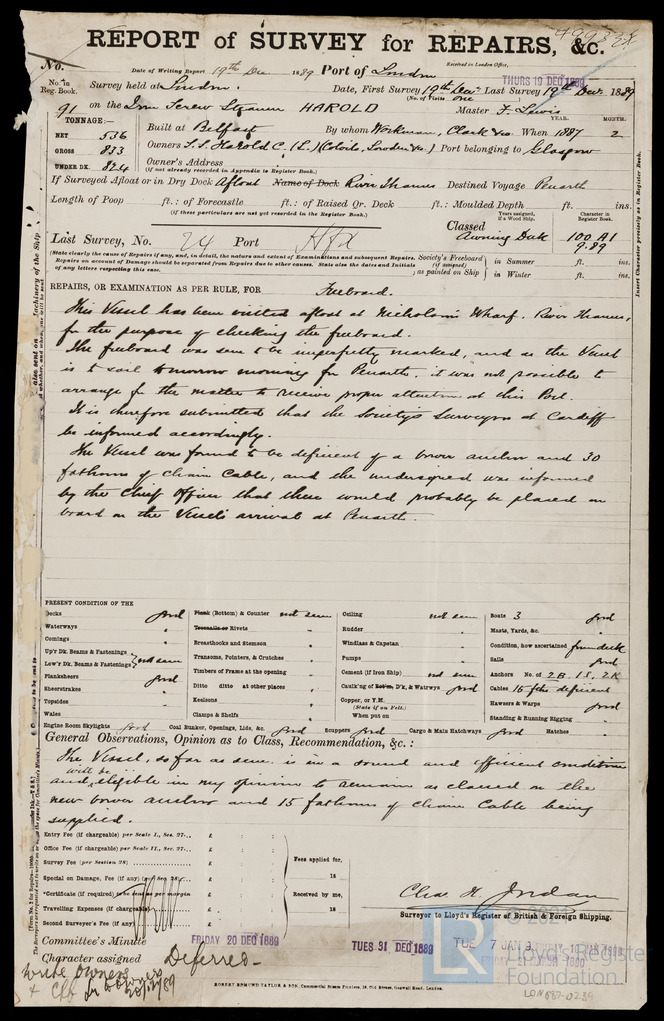 REPORT of SURVEY for REPAIRS, &c.
No.
Date of Writing Report 19th Dec 1889 Port of London
Received in London Office, THURS 19 DEC 1889
No. in Reg. Book. Survey held at London. Date, First Survey 19th Dec Last Survey 19th Dec 1889
(No. of Visits one)
91 on the Iron Screw Steamer HAROLD Master F. Lewis
TONNAGE:— YEAR. MONTH.
NET 536 Built at Belfast By whom Workman, Clark & Co. When 1887 2
GROSS 833 Owners S.S. Harold C. (L.) Port belonging to Glasgow
UNDER DK. 824 Owner's Address
(If not already recorded in Appendix to Register Book.)
If Surveyed Afloat or in Dry Dock Afloat Name of Dock River Thames Destined Voyage Penarth
Length of Poop ft.: of Forecastle ft.: of Raised Qr. Deck ft.: Moulded Depth ft. ins.
(If these particulars are not yet recorded in the Register Book.)
Years assigned, if a Wood Ship. Character in Register Book.
Classed Awning Deck 100 A1
9.89
Last Survey, No. 24 Port Hfx
(State clearly the cause of Repairs if any, and, in detail, the nature and extent of Examinations and subsequent Repairs. Repairs on account of Damage should be separated from Repairs due to other causes. State also the dates and Initials of any letters respecting this case.
Society's Freeboard (if assigned) as painted on Ship
in Summer ft. ins.
in Winter ft. ins.
REPAIRS, OR EXAMINATION AS PER RULE, FOR Freeboard.
This Vessel has been visited afloat at Nicholson's Wharf. River Thames,
for the purpose of checking the freeboard.
The freeboard was seen to be imperfectly marked, and as the Vessel
is to sail tomorrow morning for Penarth, it was not possible to
arrange for the matter to receive proper attention at this Port.
It is therefore submitted that the Society's Surveyors at Cardiff
be informed accordingly.
The Vessel was found to be deficient of a bower anchor and 30
fathoms of chain Cable, and the undersigned was informed
by the Chief Officer that these would probably be placed on
board on the Vessel's arrival at Penarth.
PRESENT CONDITION OF THE
Decks good
Waterways "
Comings "
Up'r Dk. Beams & Fastenings
Low'r Dk. Beams & Fastenings not seen
Planksheers good
Sheerstrakes "
Topsides "
Wales "
Engine Room Skylights good
Plank (Bottom) & Counter not seen
Treenails or Rivets "
Breasthooks and Stemson "
Transoms, Pointers, & Crutches "
Timbers of Frame at the opening "
Ditto ditto at other places "
Keelsons "
Clamps & Shelfs "
Coal Bunker, Openings, Lids, &c. good
Ceiling not seen
Rudder "
Windlass & Capstan "
Pumps "
Cement (if Iron Ship) not seen
Caulk'ng of Bot'm, D'k, & Watrwys good
Copper, or Y.M.
(State if on Felt.)
When put on
Scuppers good
Cargo & Main Hatchways good
Boats 3 good
Masts, Yards, &c. "
Condition, how ascertained from deck
Sails good
Anchors No. of 2 B. 1 S. 2 K
Cables 15 fths deficient
Hawsers & Warps good
Standing & Running Rigging "
Hatches "
General Observations, Opinion as to Class, Recommendation, &c.:
The Vessel, so far as seen is in a sound and efficient condition
and will be eligible in my opinion to remain as classed on the
new bower anchor and 15 fathoms of chain Cable being
supplied.
Entry Fee (if chargeable) per Scale I., Sec. 27... £ : :
Office Fee (if chargeable) per Scale II., Sec. 27... £ : :
Survey Fee (per Section 28) £ : :
Special on Damage, Fee (if any) (per Sec. 28) £ : :
*Certificate (if required) to be sent as per margin
Travelling Expenses (if chargeable) £ : :
Second Surveyor's Fee (if any) £ : :
Fees applied for,
18
Received by me,
18
Chas H. Jordan
Surveyor to Lloyd's Register of British & Foreign Shipping.
Committee's Minute FRIDAY 20 DEC 1889 TUES 31 DEC 1889 TUE 7 JAN
Character assigned Deferred
Write Owners
ROBERT EDMUND TAYLOR & SON, Commercial Steam Printers, 19, Old Street, Goswell Road, London.
LR
© 2021
Lloyd's Register
Foundation
LON687-0239
Insert Character precisely as in Register Book.